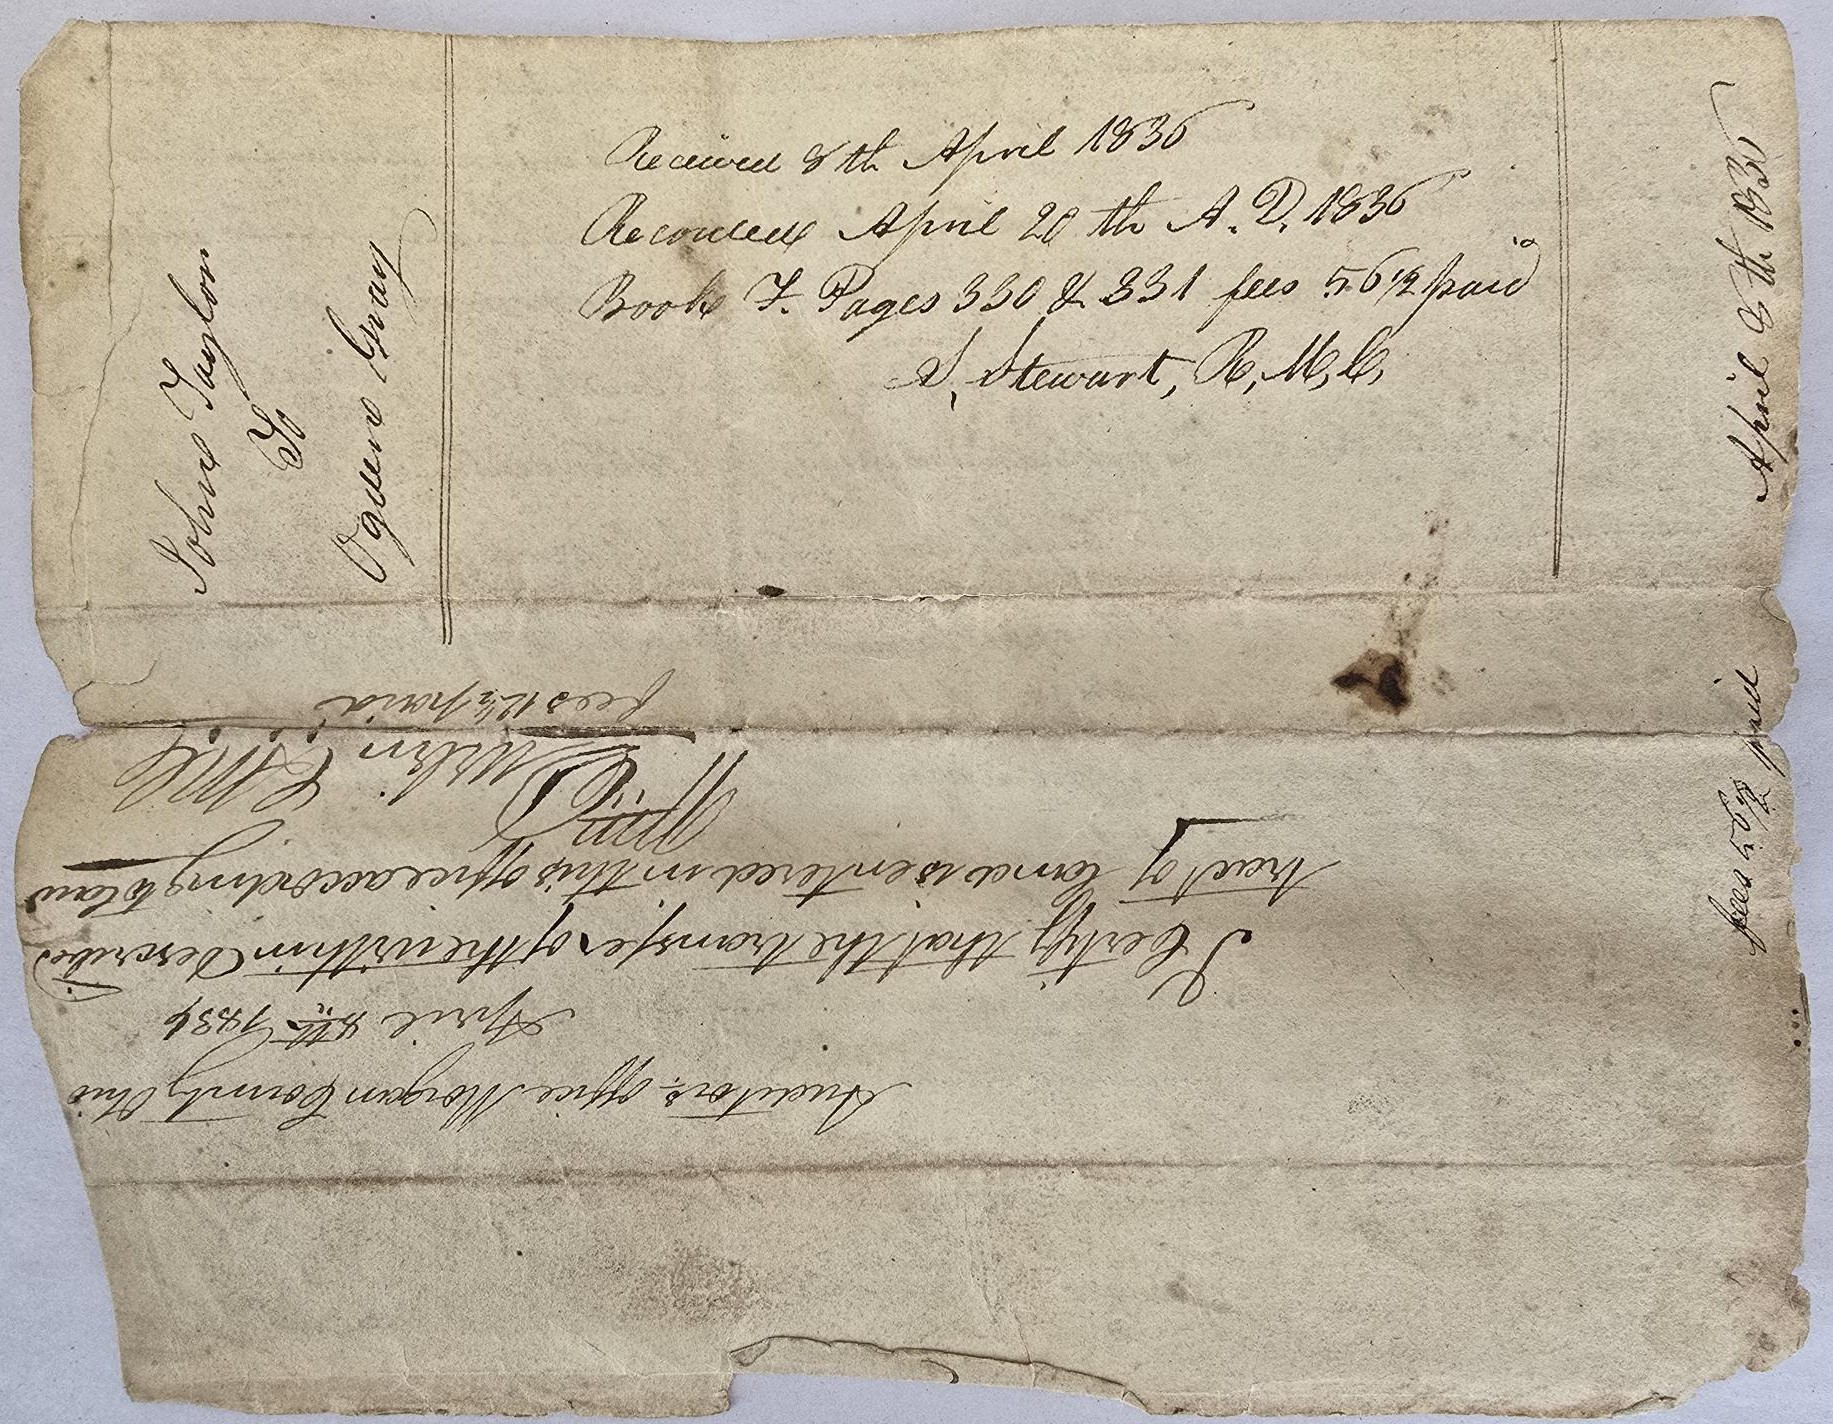 John Taylor
To
Ogden Gray
Received 8th April 1836
Recorded April 20th A.D. 1836
Book F. Pages 330 & 331 fees 56 1/2 paid
S. Stewart, R.M.C.
April 8th 1836
fees 56 1/2 paid
Auditors office Morgan County Ohio
April 8th 1836
I Certify that the transfer of the within Described
tract of land is entered in this office according to law
Wm
fees 12 1/2 paid